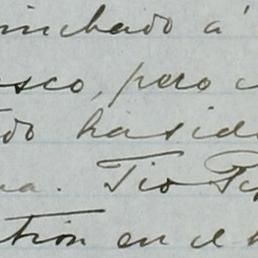 inchado á
sco, pero
do ha sid
a. Tio
tion en el